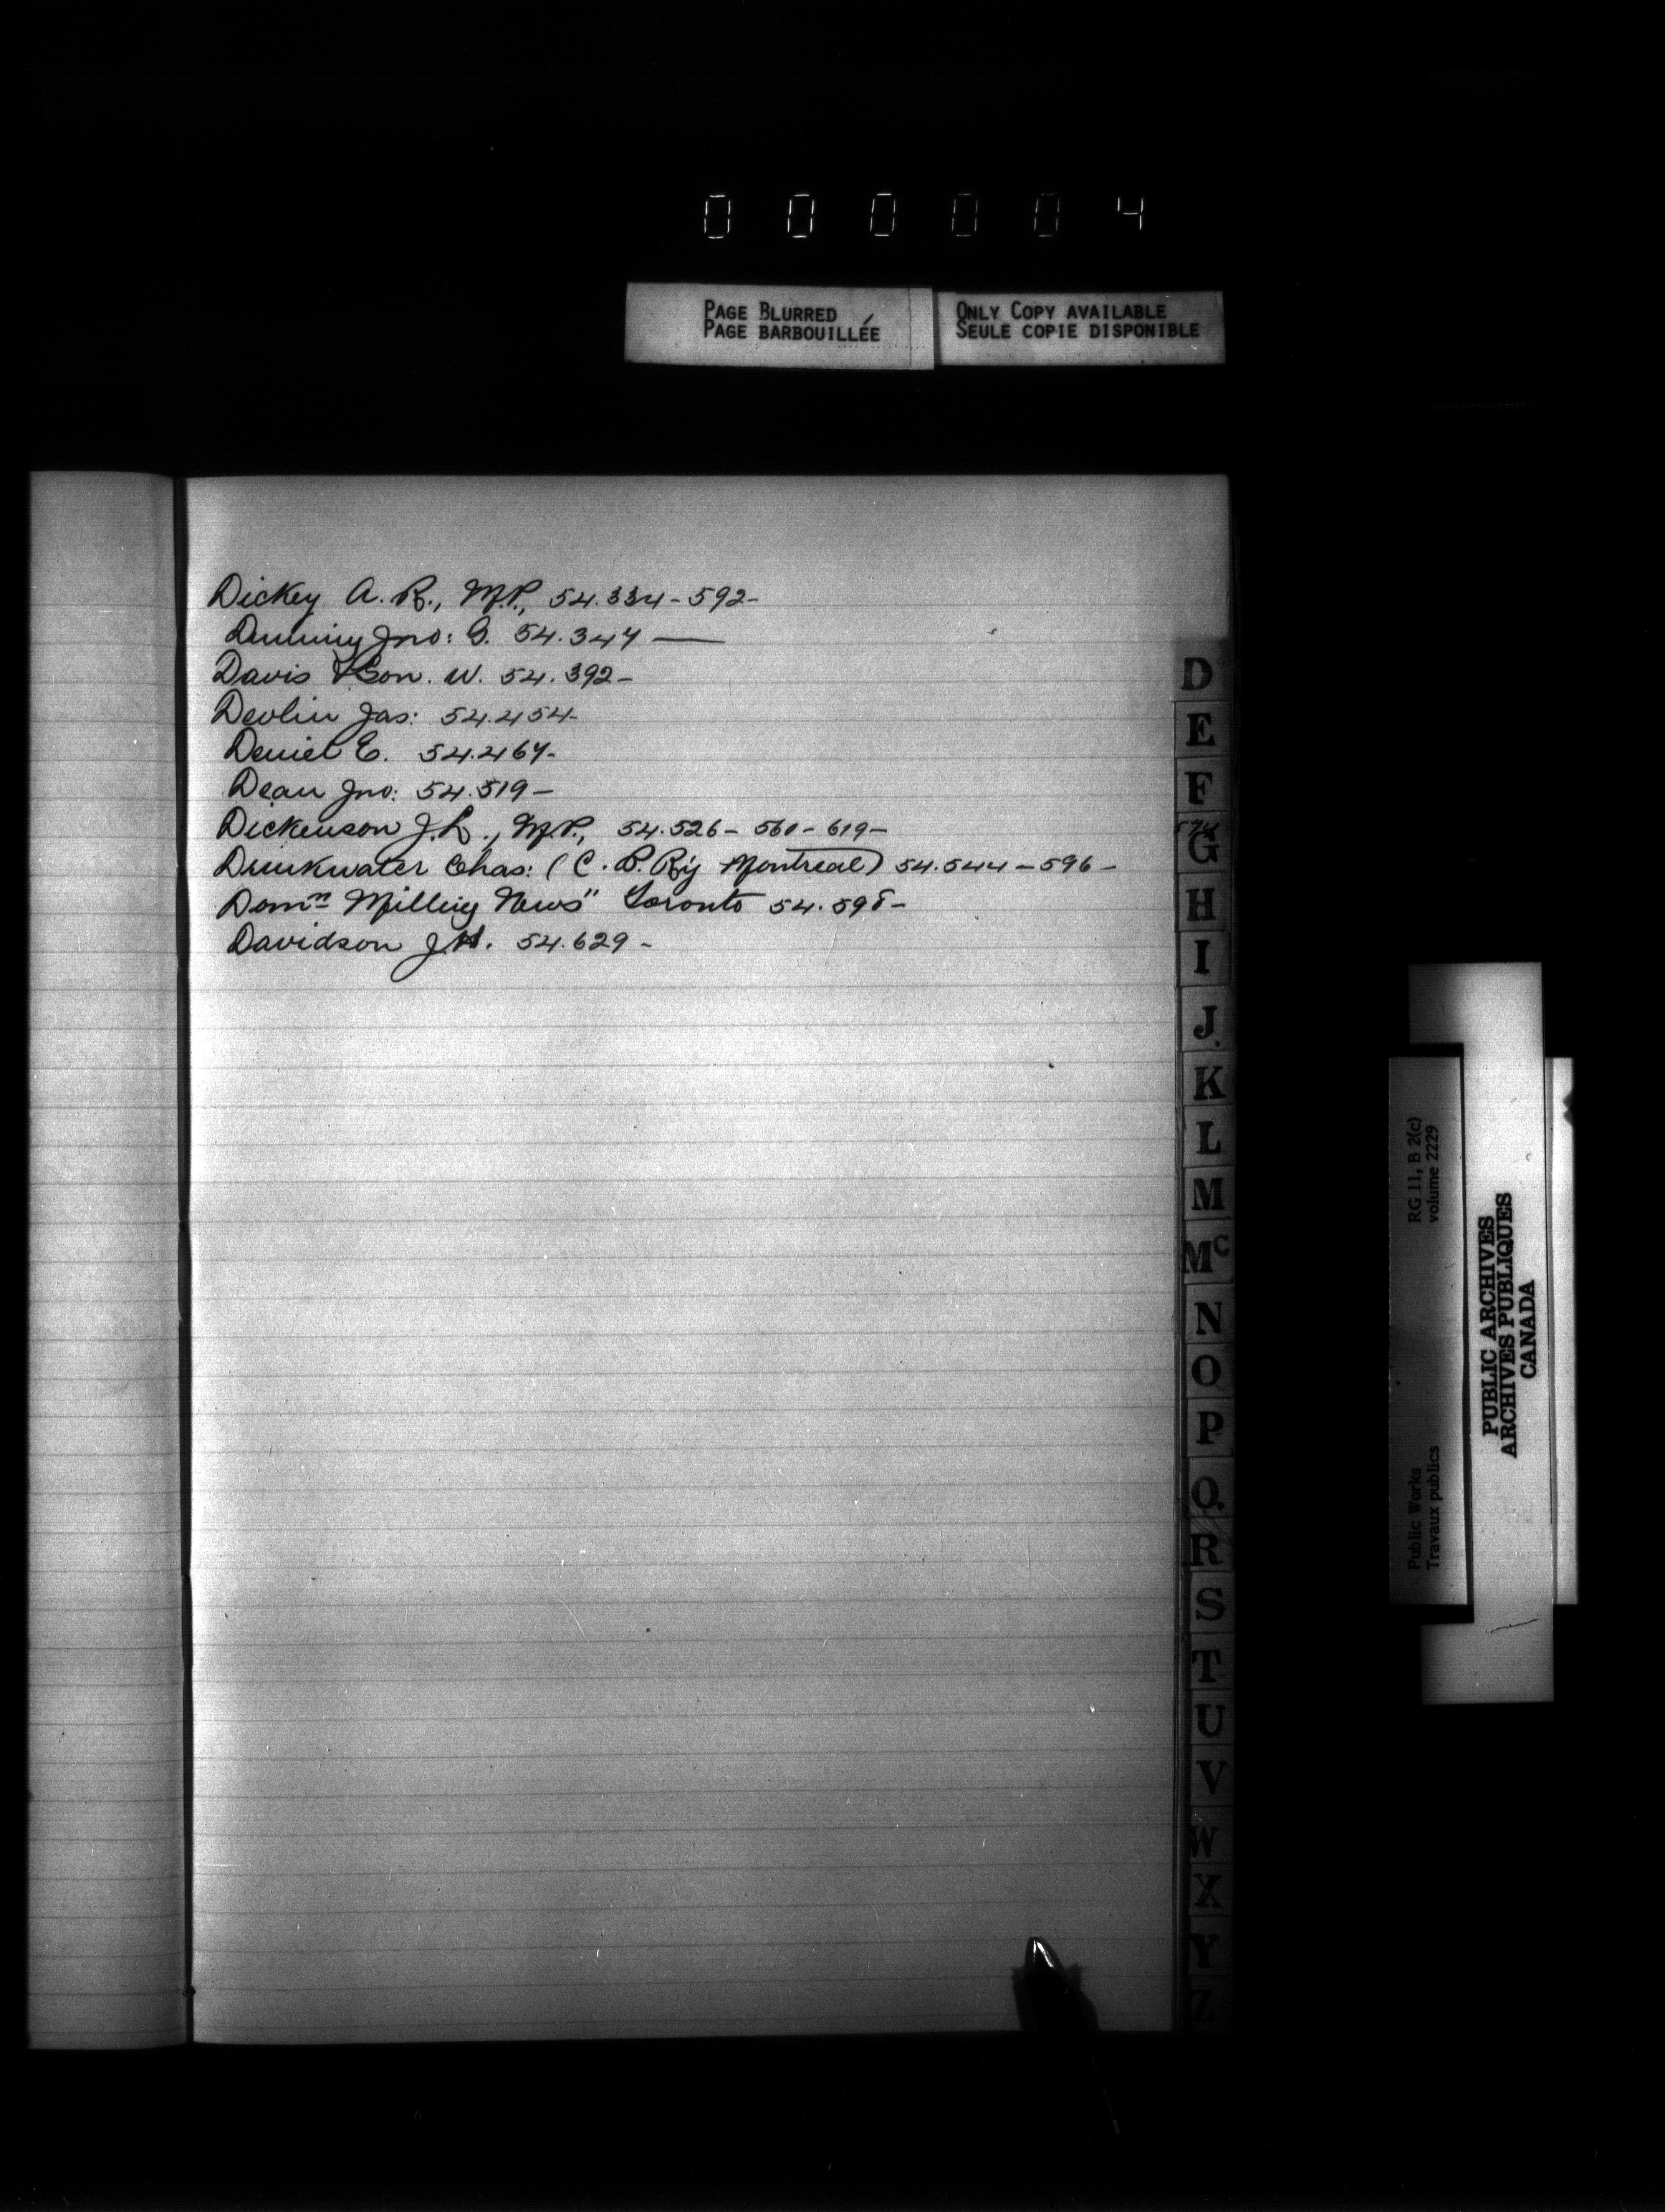 0 0 0 0 0 4
PAGE BLURRED
PAGE BARBOUILLÉE
ONLY COPY AVAILABLE
SEULE COPIE DISPONIBLE
Dickey A. R., M.P., 54.334-592-
Jno: G. 54.347 —
Davis & Son. W. 54.392-
Devlin Jas: 54.454-
Deniel E. 54.467-
Dean Jno: 54.519-
Dickenson J.L., M.P., 54.526-561-619-
Drinkwater Chas: (C. P. Ry Montreal) 54.544-596-
Domn Milling News" Toronto 54.598-
Davidson J.H. 54.629-
D
E
F
G
H
I
J.
K
L
M
Mc
N
O
P
Q.
R
S
T
U
V
W
X
Y
Z
Public Works
Travaux publics
RG 11, B 2(c)
volume 2229
PUBLIC ARCHIVES
ARCHIVES PUBLIQUES
CANADA